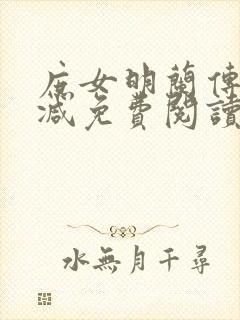 庶女明蘭傳
減免費閱讀
水無月千尋